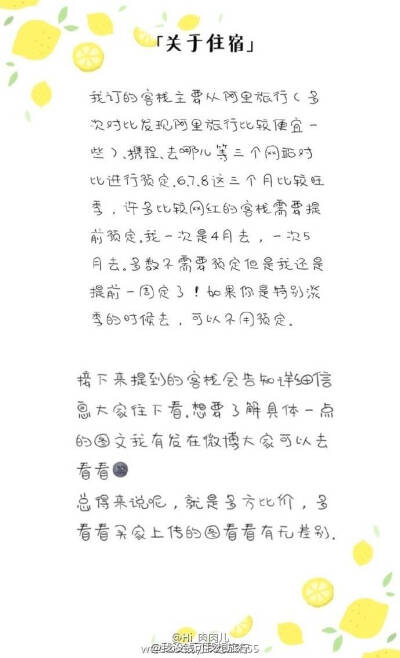 「关于住宿」
我订的客栈主要从阿里旅行(多
次对比发现阿里旅行比较便宜一
些).携程.去哪儿等三个网站对
比进行预定.6.7.8这三个月比较旺
季，许多比较网红的客栈需要提
前预定.我一次是4月去，一次5
月去.多数不需要预定但是我还是
提前一周定了！如果你是特别淡
季的时候去，可以不用预定.
接下来提到的客栈会告知详细信
息大家往下看.想要了解具体一点
的图文我有发在微博大家可以去
看看
总得来说呢，就是多方比价，多
看看买家上传的图看看有无差别.
@Hi_肉肉儿